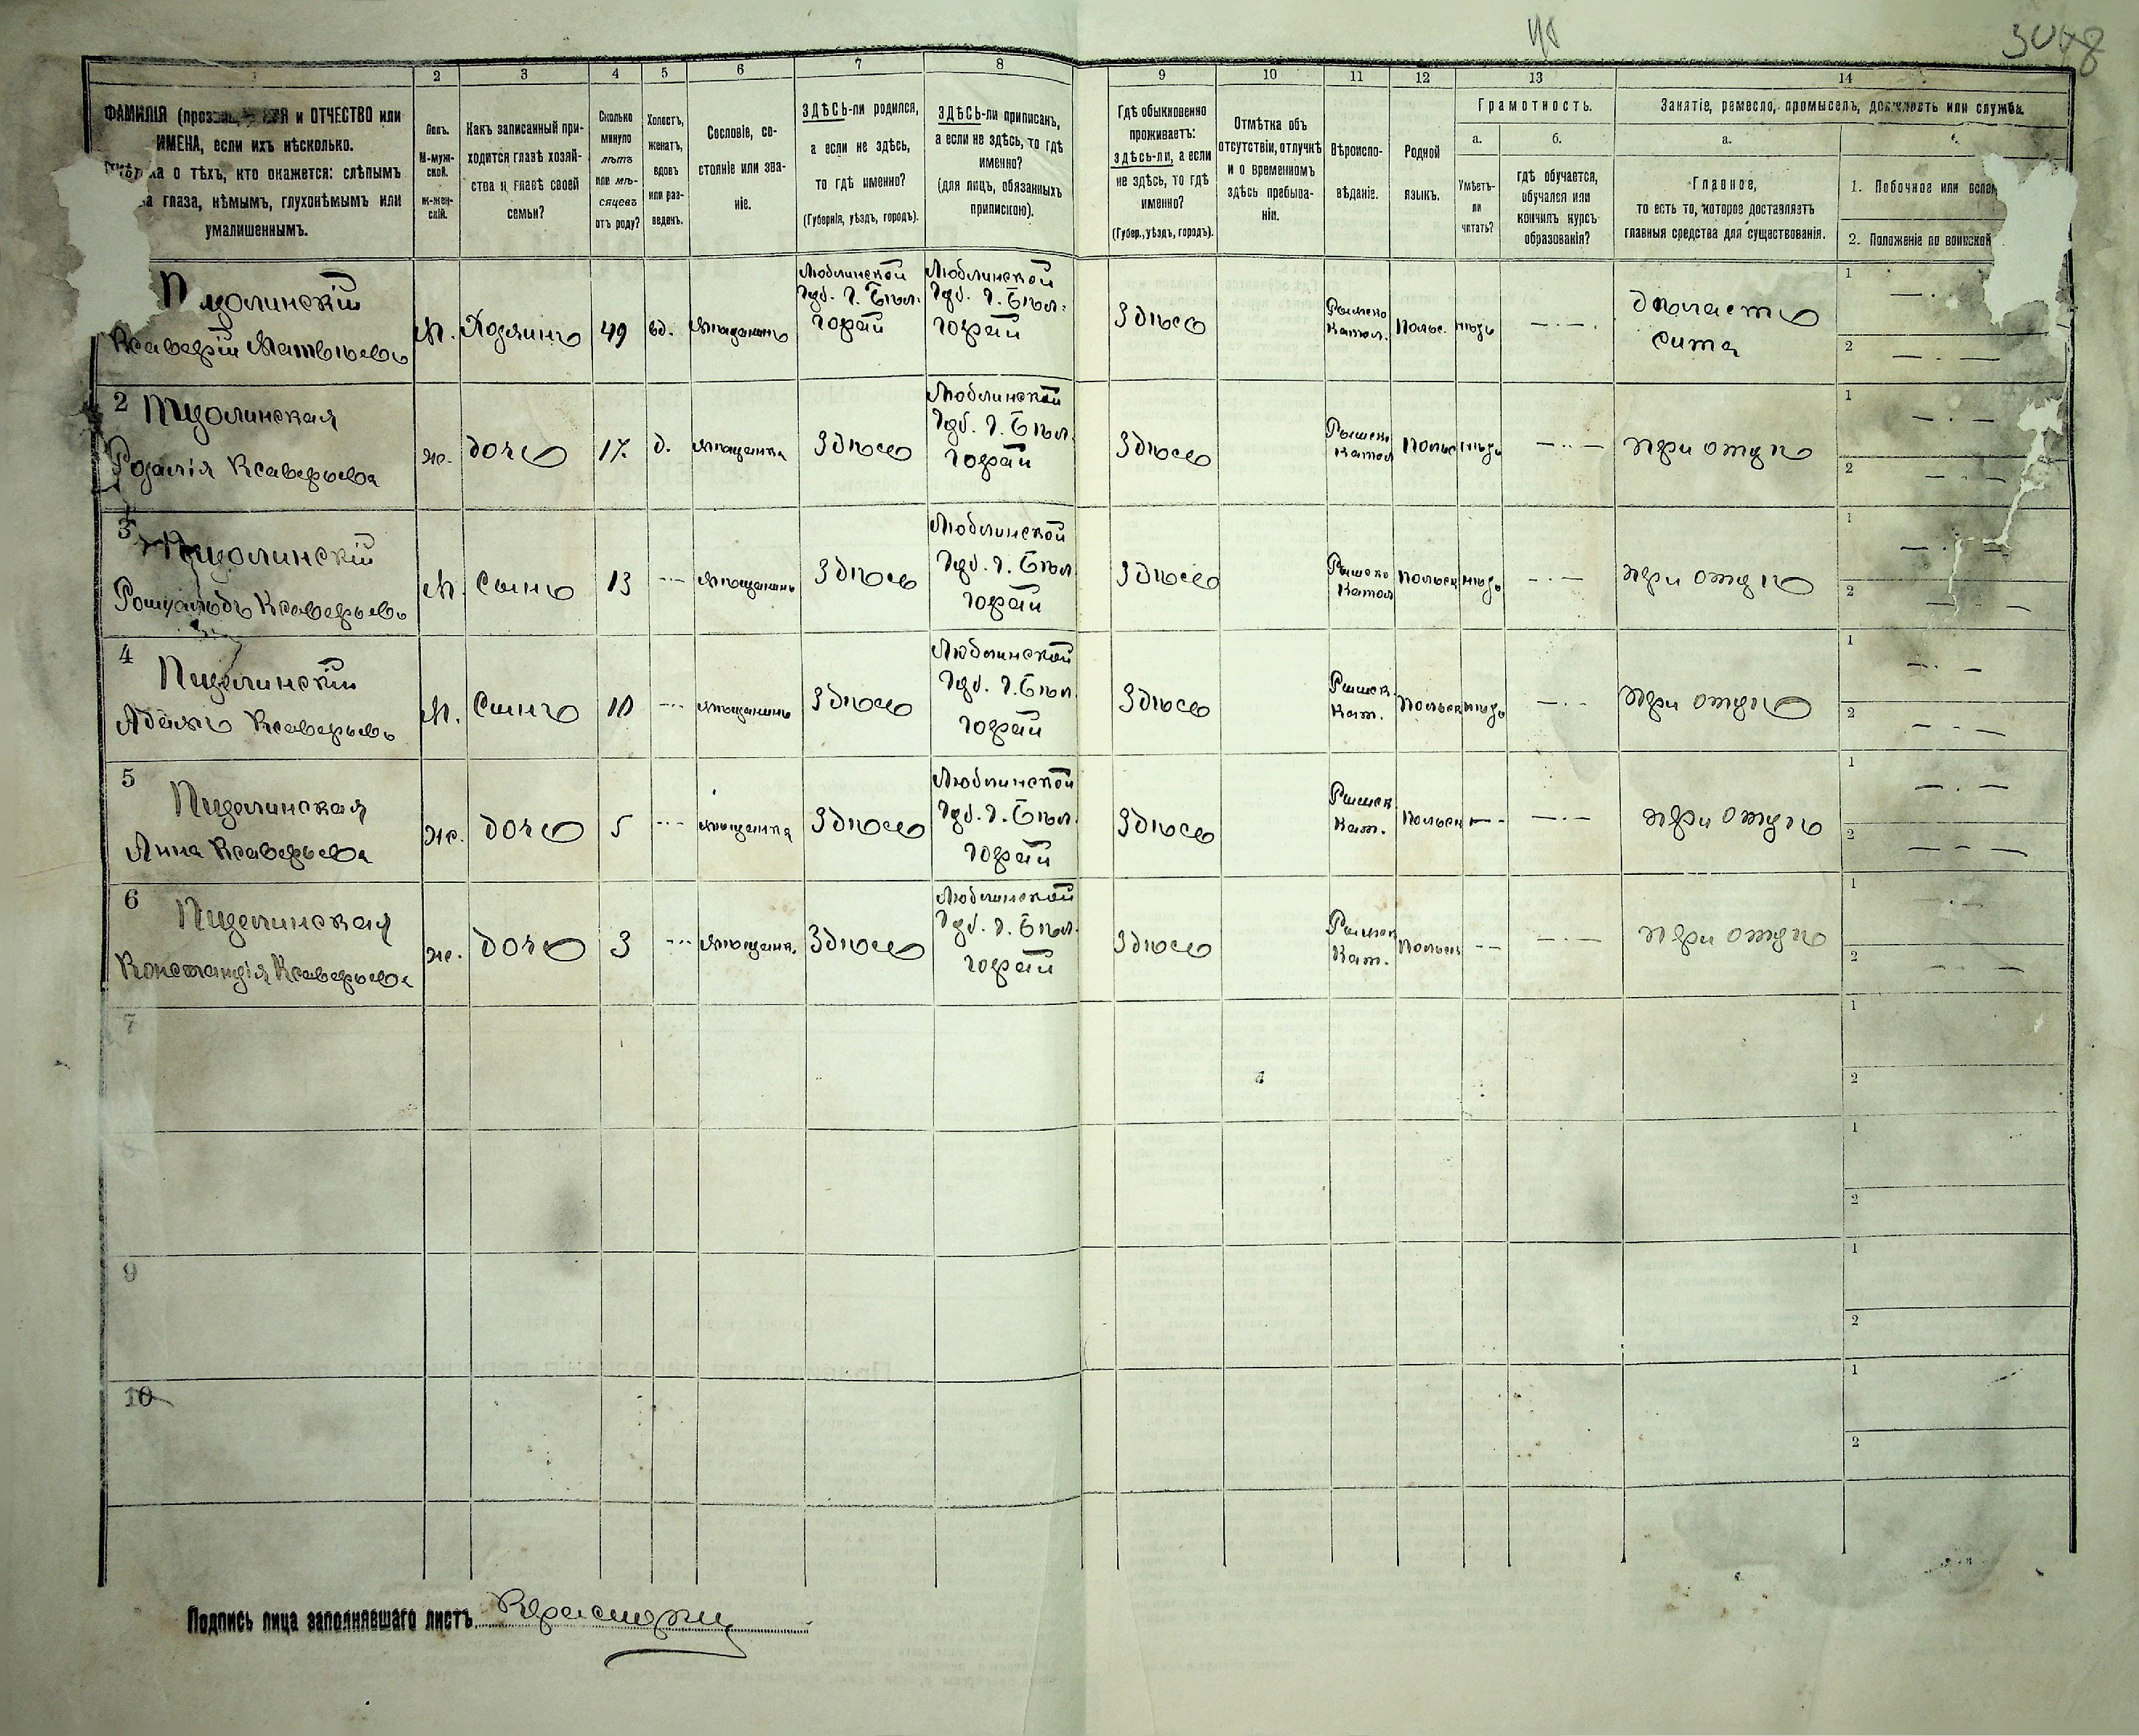 48
3048
1
2
3
4
5
6
7
8
9
10
11
12
13
14
ФАМИЛІЯ и ОТЧЕСТВО или
ИМЕНА, если ихъ нѣсколько.
о тѣхъ, кто окажется: слѣпымъ
глаза, нѣмымъ, глухонѣмымъ или
умалишеннымъ.
Полъ.
М-муж-
ской.
Ж-жен-
скій.
Какъ записанный при-
ходится главѣ хозяй-
ства и главѣ своей
семьи?
Сколько
минуло
лѣтъ
или мѣ-
сяцевъ
отъ роду?
Холостъ,
женатъ,
вдовъ
или раз-
веденъ.
Сословіе, со-
стояніе или зва-
ніе.
ЗДѢСЬ-ли родился,
а если не здѣсь,
то гдѣ именно?
(Губернія, уѣздъ, городъ).
ЗДѢСЬ-ли приписанъ,
а если не здѣсь, то гдѣ
именно?
(для лицъ, обязанныхъ
припискою).
Гдѣ обыкновенно
проживаетъ:
здѣсь-ли, а если
не здѣсь, то гдѣ
именно?
(Губер., уѣздъ, городъ).
Отмѣтка объ
отсутствіи, отлучкѣ
и о временномъ
здѣсь пребыва-
ніи.
Вѣроиспо-
вѣданіе.
Родной
языкъ.
Грамотность.
а.
Умѣетъ-
ли
читать?
б.
гдѣ обучается,
обучался или
кончилъ курсъ
образованія?
Занятіе, ремесло, промыселъ, должность или служба.
а.
Главное,
то есть то, которое доставляетъ
главныя средства для существованія.
1. Побочное или
2. Положеніе по воинской
Ксаверій Матвѣевъ
М.
Хозяинъ
49
вд.
мѣщанинъ
Люблинской
Губ. г. Бѣл-
горай
Люблинской
Губ. г. Бѣл-
горай
Здѣсь
Римско
Катол.
Польс.
нѣтъ
— · — ·
дѣлаетъ
сита
1 — · —
2 — · —
2
Розалія Ксаверьева
ж.
дочь
17
д.
мѣщанка
Здѣсь
Люблинской
Губ. г. Бѣл-
горай
Здѣсь
Римско
Катол
Польс
нѣтъ
— · · —
при отцѣ
1 — · —
2 — · —
3
Ромуальдъ Ксаверьевъ
М.
Сынъ
13
- · -
мѣщанинъ
Здѣсь
Люблинской
Губ. г. Бѣл
горай
Здѣсь
Римско
Катол
Польск
нѣтъ
— · —
при отцѣ
1 — · —
2 — · —
4
Адамъ Ксаверьевъ
М.
Сынъ
10
- · ·
мѣщанинъ
Здѣсь
Люблинской
Губ. г. Бѣл.
горай
Здѣсь
Римск
Кат.
Польск
нѣтъ
— · —
при отцѣ
1 — · —
2 — · —
5
Анна Ксаверьева
ж.
дочь
5
- · -
мѣщанка
Здѣсь
Люблинской
Губ. г. Бѣл.
горай
Здѣсь
Римск
Кат.
Польск
— -
— · —
при отцѣ
1 — · —
2 — - —
6
Констанція Ксаверьева
ж.
дочь
3
- · ·
мѣщанк.
Здѣсь
Люблинской
Губ. г. Бѣл.
горай
Здѣсь
Римск
Кат.
Польск
- -
— · —
при отцѣ
1 — · —
2 — - —
7
1
2
8
1
2
9
1
2
10
1
2
Подпись лица заполнявшаго листъ